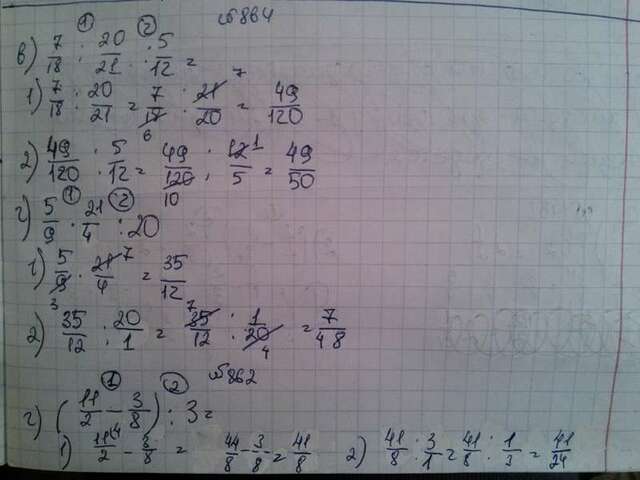 №864
в) 7/18 : 20/21 : 5/12 =
① ②
1) 7/18 : 20/21 = 7/18 · 21/20 = 49/120
6 7
2) 49/120 : 5/12 = 49/120 · 12/5 = 49/50
10 1
г) 5/9 · 21/4 : 20
① ②
1) 5/9 · 21/4 = 35/12
3 7
2) 35/12 : 20/1 = 35/12 · 1/20 = 7/48
7 4
№862
г) (11/2 - 3/8) : 3 =
① ②
1) 11/2 - 3/8 = 44/8 - 3/8 = 41/8 2) 41/8 : 3/1 = 41/8 : 1/3 = 41/24